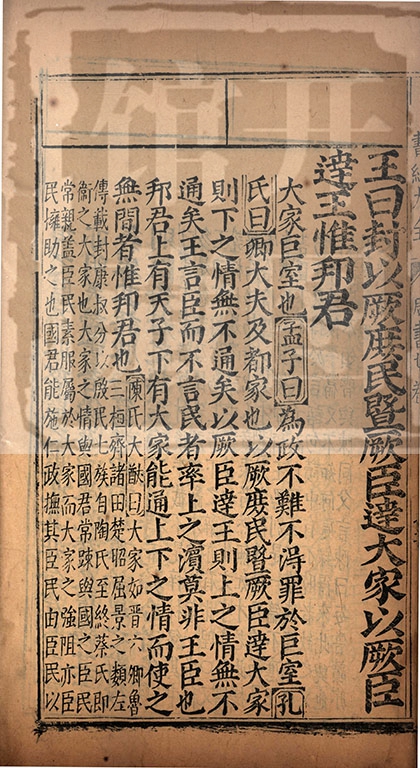 王曰封以厥庶民暨厥臣達大家以厥臣
達王惟邦君
大家巨室也孟子曰為政不難不得罪於巨室孔
氏曰卿大夫及都家也以厥庶民暨厥臣達大家
則下之情無不通矣以厥臣達王則上之情無不
通矣王言臣而不言民者率土之濵莫非王臣也
邦君上有天子下有大家能通上下之情而使之
無間者惟邦君也
陳氏大猷曰大家如晋六卿魯
三桓齊諸田楚昭屈景之類左
傳載封康叔分以殷民七族自陶氏至終葵氏即
衛之大家也大家之情與國君常踈與國之臣民
常親盖臣民素服屬於大家而大家之強阻亦臣
民擁助之也國君能施仁政撫其臣民由臣民以